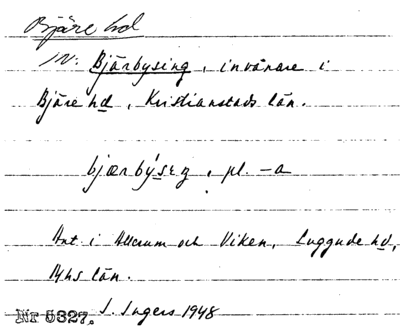 Bjäre hd
IN: Bjärbysing, invånare i
Bjäre hd, Kristianstads län.
bjærbýseŋ, pl. -a
Ant. i Allerum och Viken, Luggude hd,
Mhs län.
Nr 5327. S. Ingers 1948